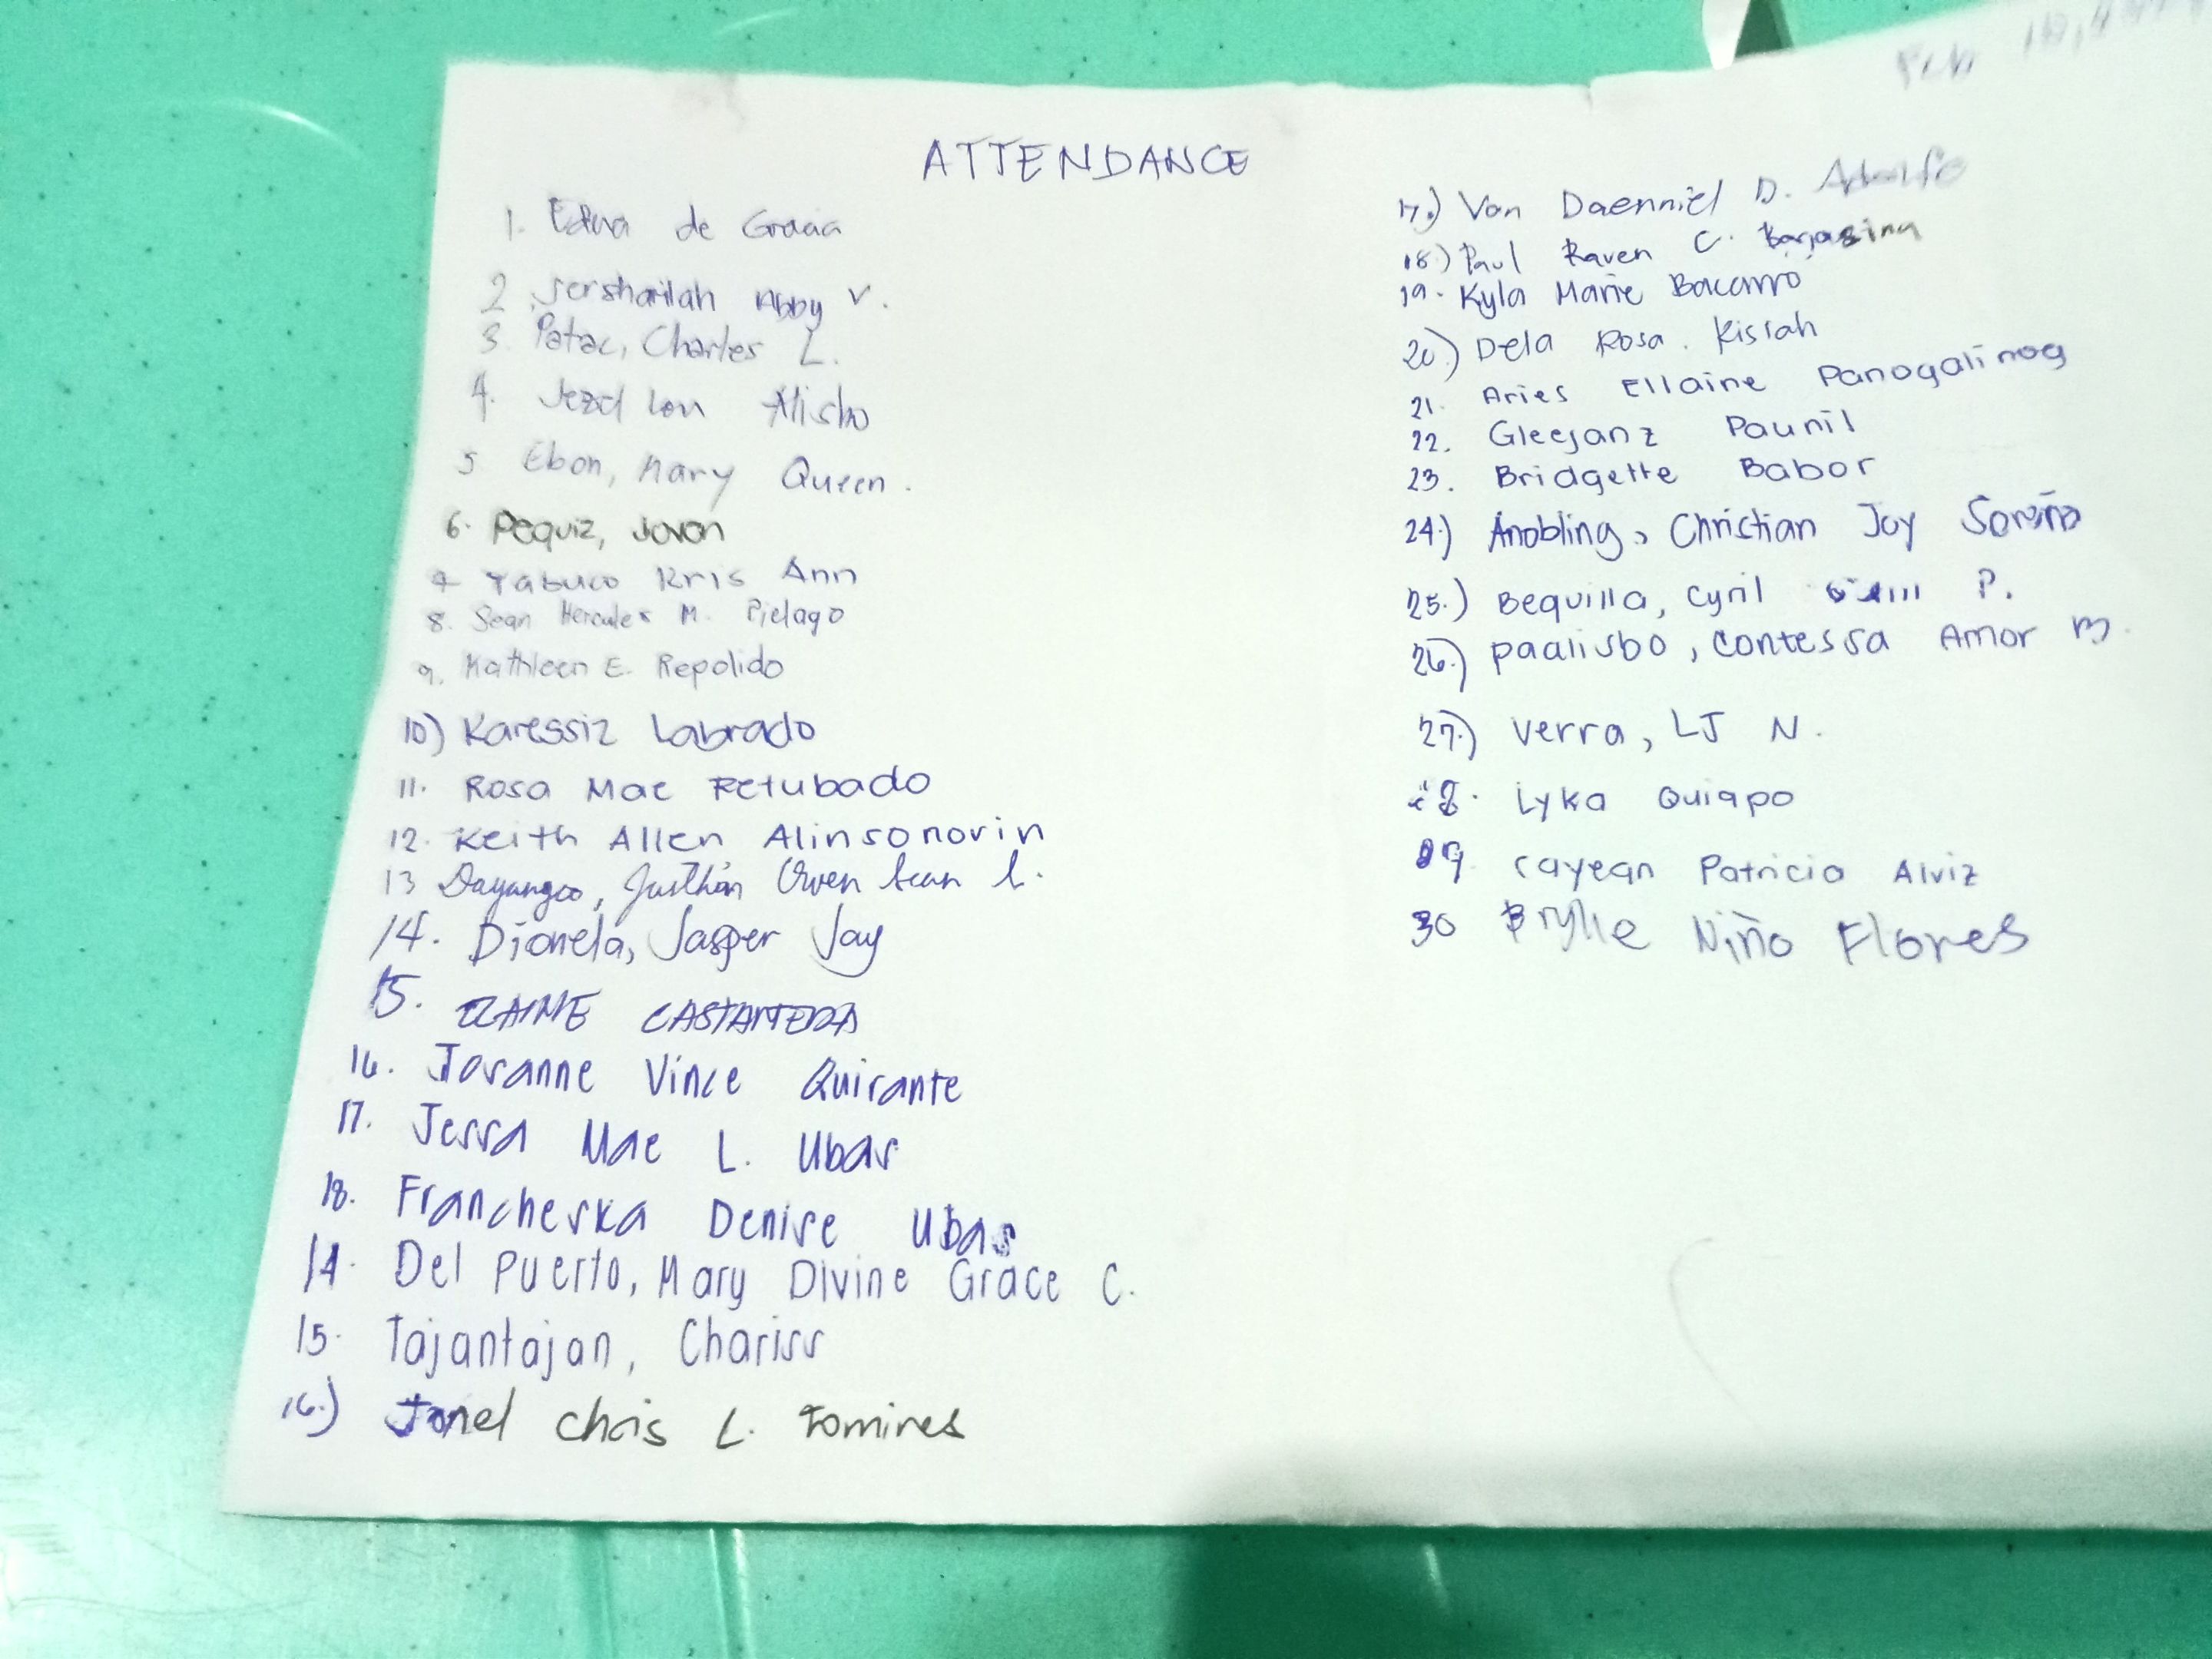 ATTENDANCE
1. Edna de Gracia
2. Jershailah Abby V.
3 Patac, Charles L.
4. Lou
5 Ebon, Mary Queen.
6. Pequiz, Jovan
7 Tabuco Kris Ann
8. Sean Hercules M. Pielago
9. Kathleen E. Repolido
10) Karessiz Labrado
11. Rosa Mae Retubado
12. Keith Allen Alinsonorin
13 Dayangco, Justhin Owen Sean L.
14. Dionela, Jasper Jay
15. ELAINE CASTAÑEDA
16. Jovanne Vince Quirante
17. Jessa Mae L. Ubas
18. Francheska Denise Ubas
14. Del Puerto, Mary Divine Grace C.
15. Tajantajan, Chariss
16.) Jonel Chris L. Tomines
17.) Van Daenniel D. Adolfo
18.) Paul Raven C.
19. Kyla Marie Bacarro
20.) Dela Rosa. Kisiah
21. Aries Ellaine Panogalinog
22. Gleejanz Paunil
23. Bridgette Babor
24.) Anobling, Christian Joy Soroño
25.) Bequilla, Cyril P.
26.) Paalisbo, Contessa Amor M.
27.) Verra, LJ N.
28. Lyka Quiapo
29. Cayean Patricia Alviz
30 Brylle Niño Flores